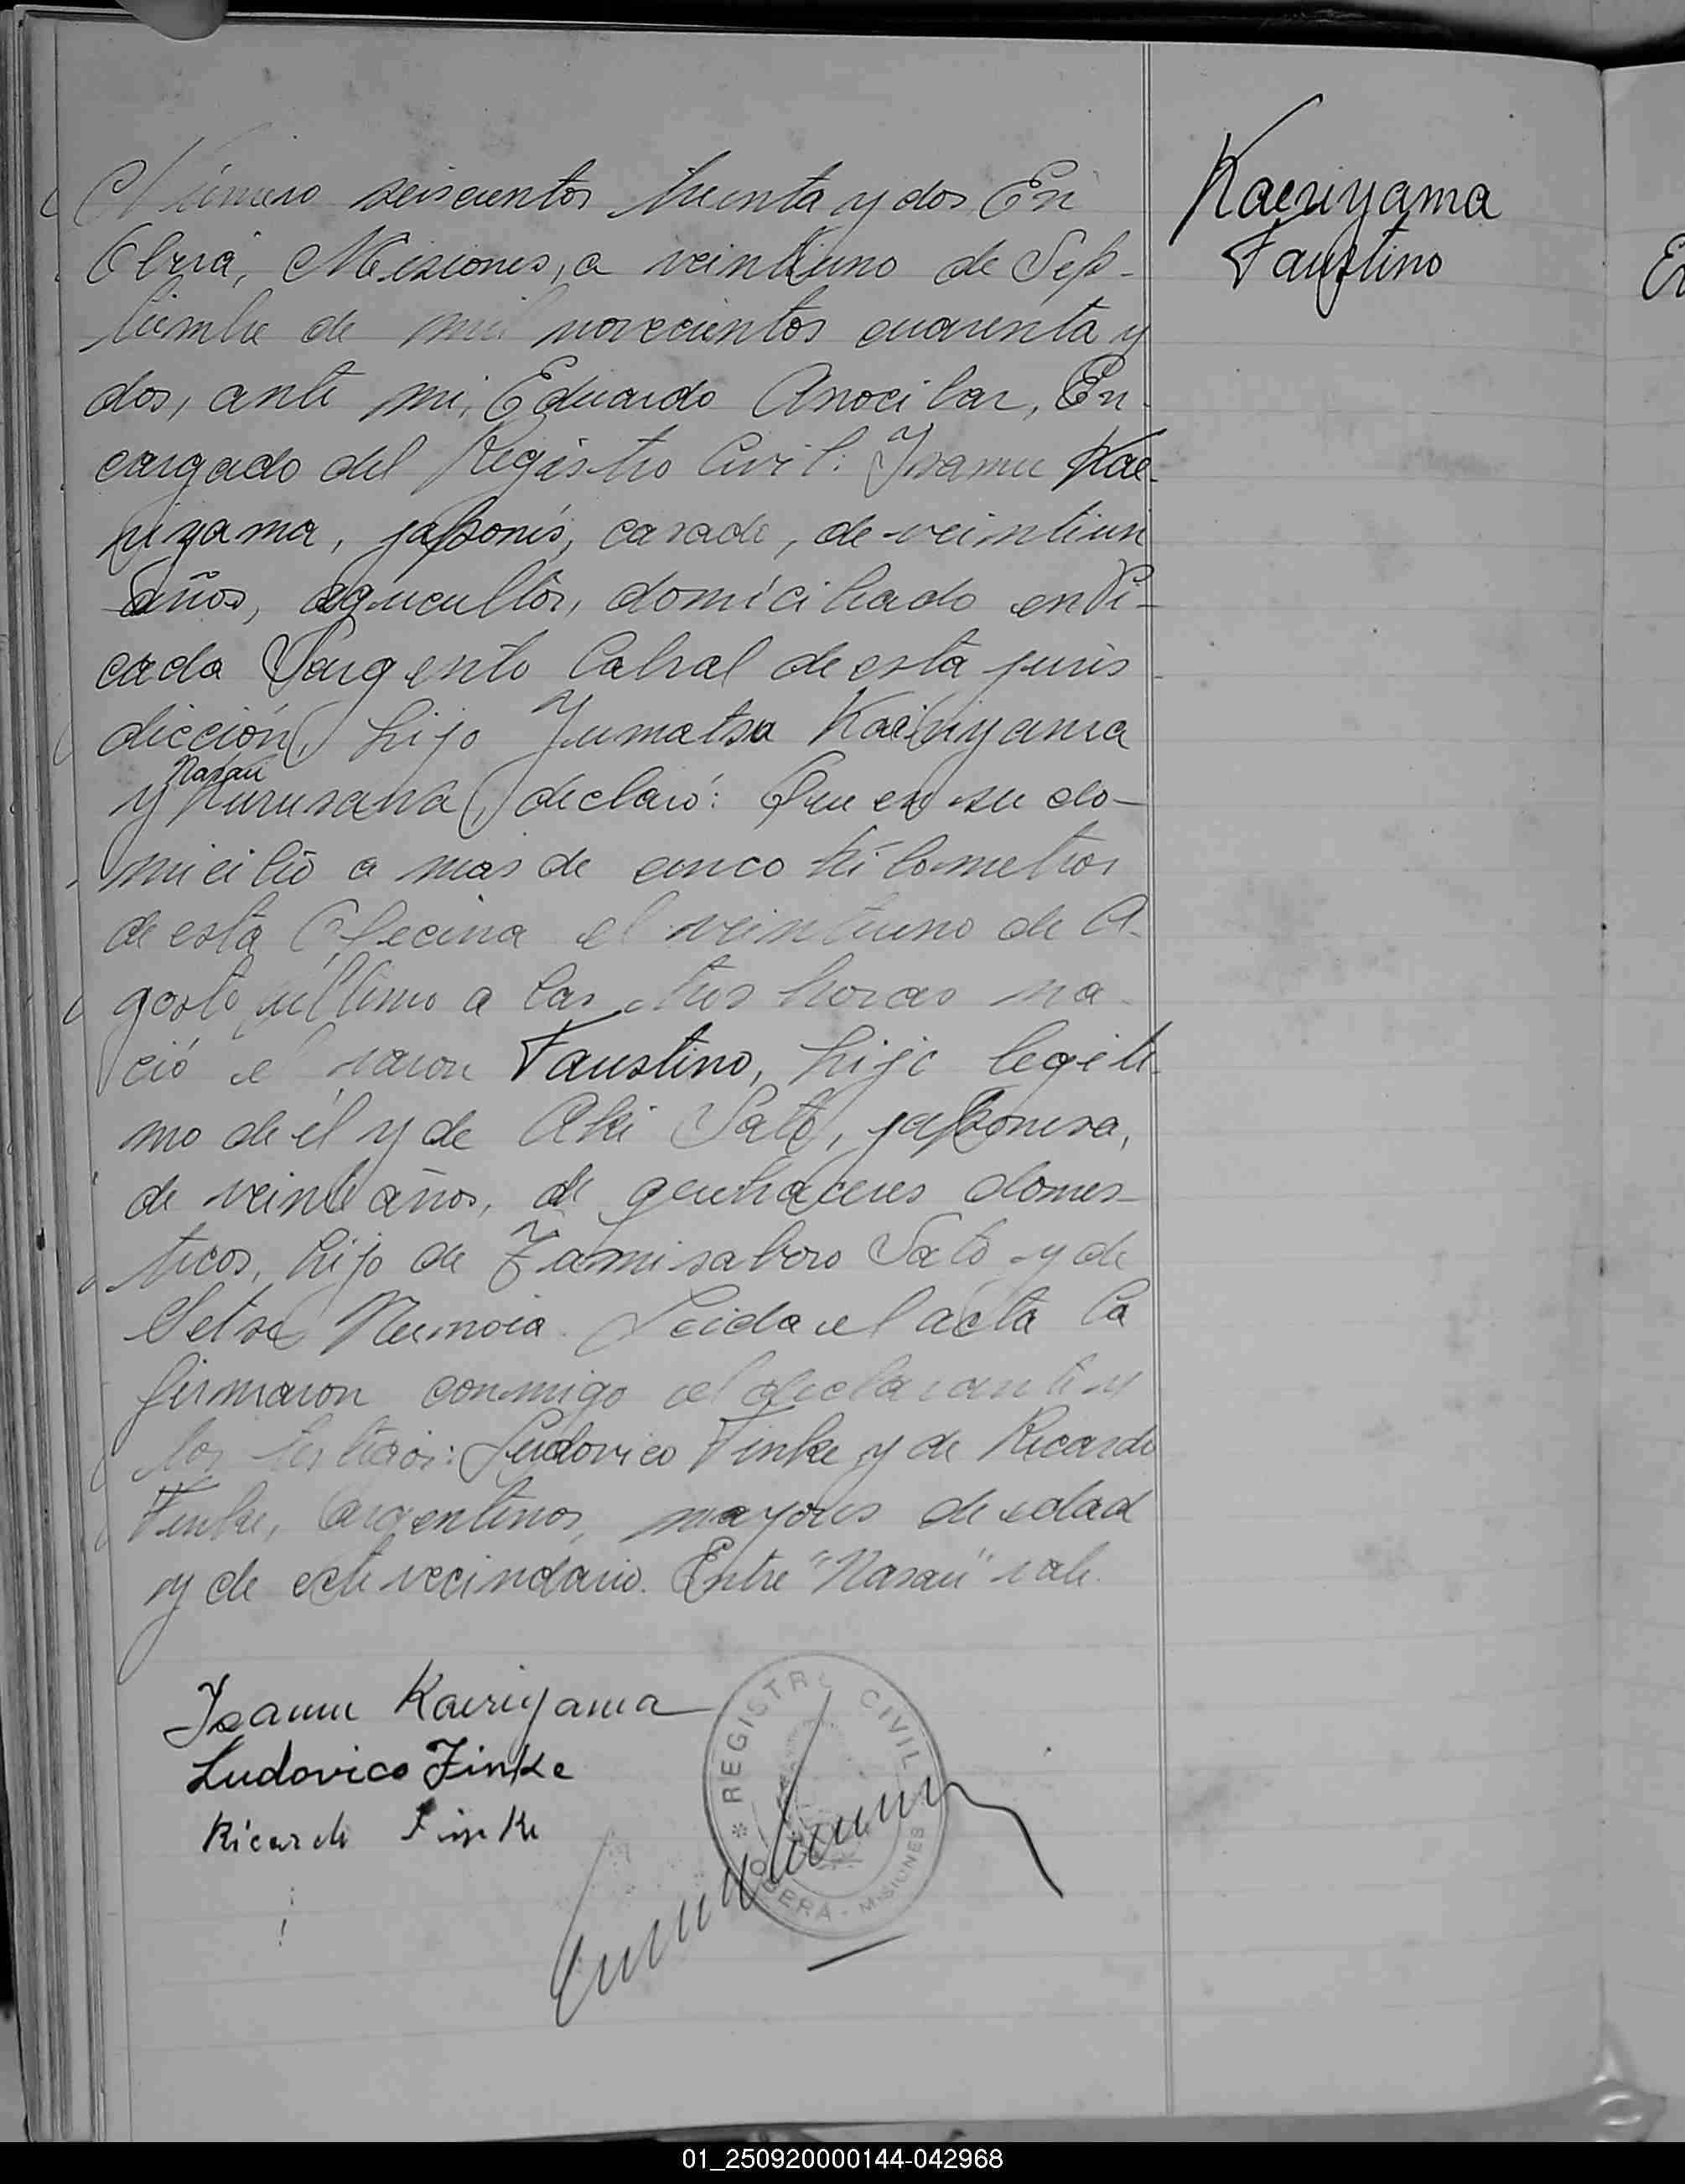 Número seiscientos treinta y dos En
Oberá, Misiones, a veintiuno de Sep-
tiembre de mil novecientos cuarenta y
dos, ante mi, Eduardo Anocibar, En-
cargado del Registro Civil: Ysamu Kae-
riyama, japonés, casado, de veintiun
años, agricultor, domiciliado en Pi-
cada Sargento Cabral de esta juris
dicción, hijo Jumatsu Kaeriyama
y Nasau, declaró: Que en su do-
micilio a mas de cinco kilometros
de esta Oficina el veintiuno de A-
gosto último a las tres horas na-
ció el varon Faustino, hijo legiti-
mo de él y de Aki Sato, japonesa,
de veinte años, de quehaceres domes-
ticos, hijo de Sato y de
Leida el acta la
firmaron conmigo el declarante y
los testigos: Ludovico Finke y de Ricardo
Finke, argentinos, mayores de edad
y de este vecindario. Entre "Nasau" vale.
Kaeriyama
Faustino
Isamu Kaeriyama
Ludovico Finke
Ricardo Finke
REGISTRO CIVIL
OBERA - MISIONES
01_250920000144-042968